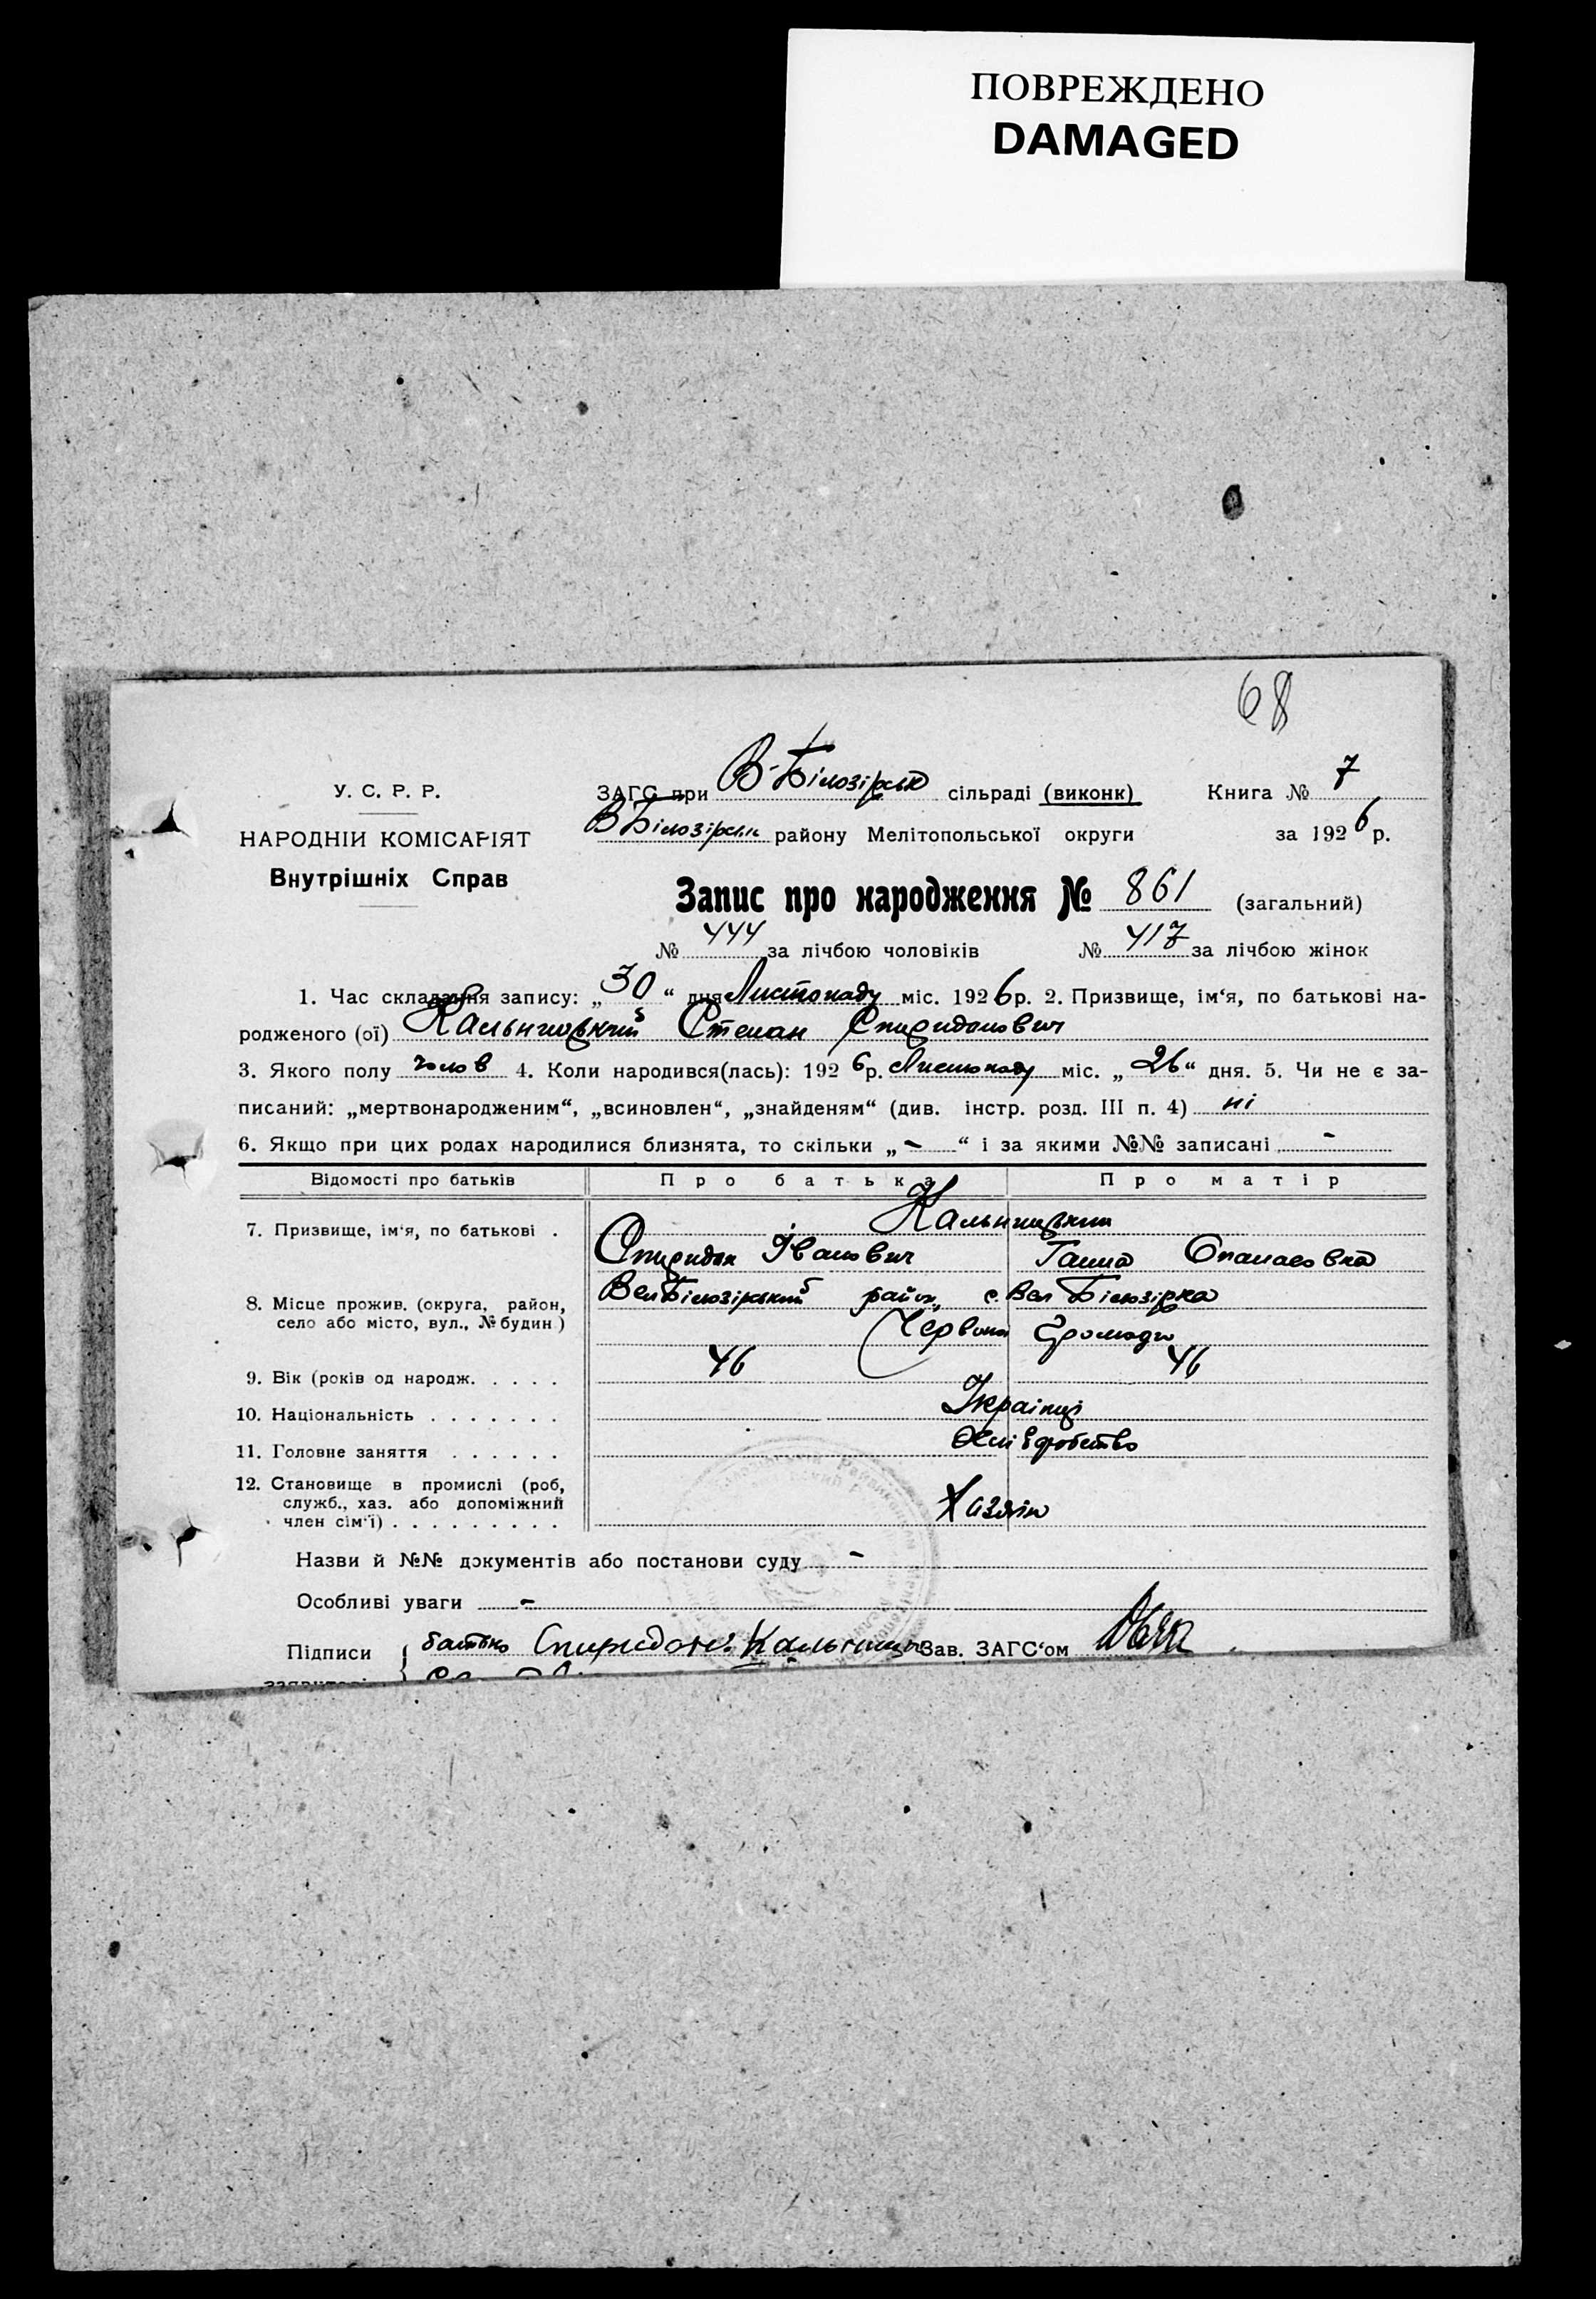 ПОВРЕЖДЕНО
DAMAGED
68
У. С. Р. Р.
НАРОДНІЙ КОМІСАРІЯТ
Внутрішніх Справ
ЗАГС при В-Білозірськ сільраді (виконк) Книга № 7
В Білозірськ району Мелітопольської округи за 1926 р.
Запис про народження № 861 (загальний)
№ 444 за лічбою чоловіків № 417 за лічбою жінок
1. Час складання запису: „30“ дня Листопаду міс. 1926 р. 2. Призвище, ім‘я, по батькові на-
родженого (ої) Кальницький Степан Спиридонович
3. Якого полу чолов 4. Коли народився(лась): 1926 р. Листопаду міс. „26“ дня. 5. Чи не є за-
писаний: „мертвонародженим“, „всиновлен“, „знайденям“ (див. інстр. розд. III п. 4) ні
6. Якщо при цих родах народилися близнята, то скільки „-“ і за якими №№ записані -
Відомості про батьків Про батька Про матір
7. Призвище, ім‘я, по батькові . Кальницький
Спиридон Іванович Ганна Опанасовна
8. Місце прожив. (округа, район,
село або місто, вул., № будин.)
Вел Білозірський район, с. Вел Білозірка
Червона Громада
9. Вік (років од народж. . . . . 46 46
10. Національність . . . . . . . Українці
11. Головне заняття . . . . . . Хліборобство
12. Становище в промислі (роб,
служб., хаз. або допоміжний
член сім‘ї) . . . . . . . . . Хазяїн
Назви й №№ документів або постанови суду -
Особливі уваги -
Підписи батько Спиридон Кальниць Зав. ЗАГС‘ом